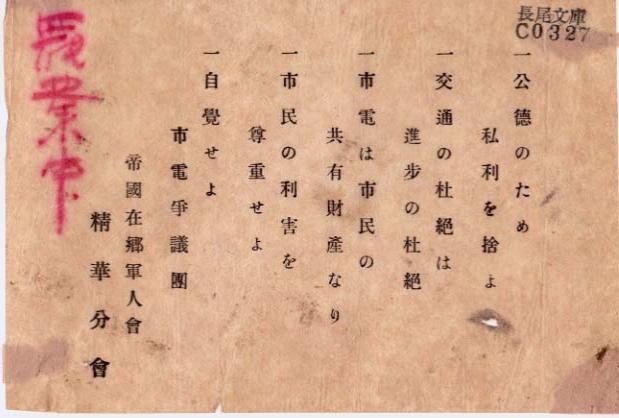 長尾文庫
C0327
一公德のため
私利を捨よ
一交通の杜絕は
進步の杜絕
一市電は市民の
共有財產なり
一市民の利害を
尊重せよ
一自覺せよ
市電爭議團
帝國在鄕軍人會
精華分會
罷業中